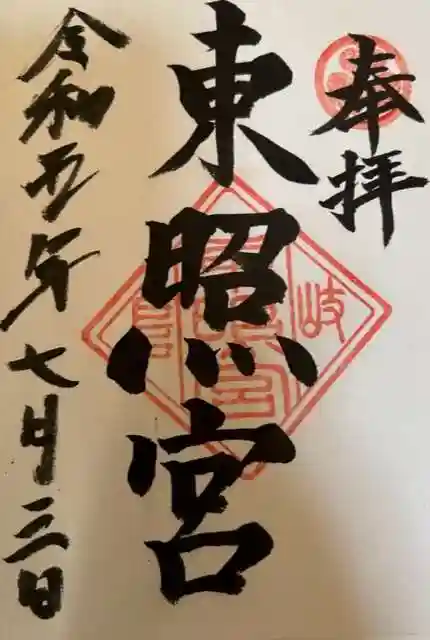 奉拝
東照宮
令和五年七月三日
岐